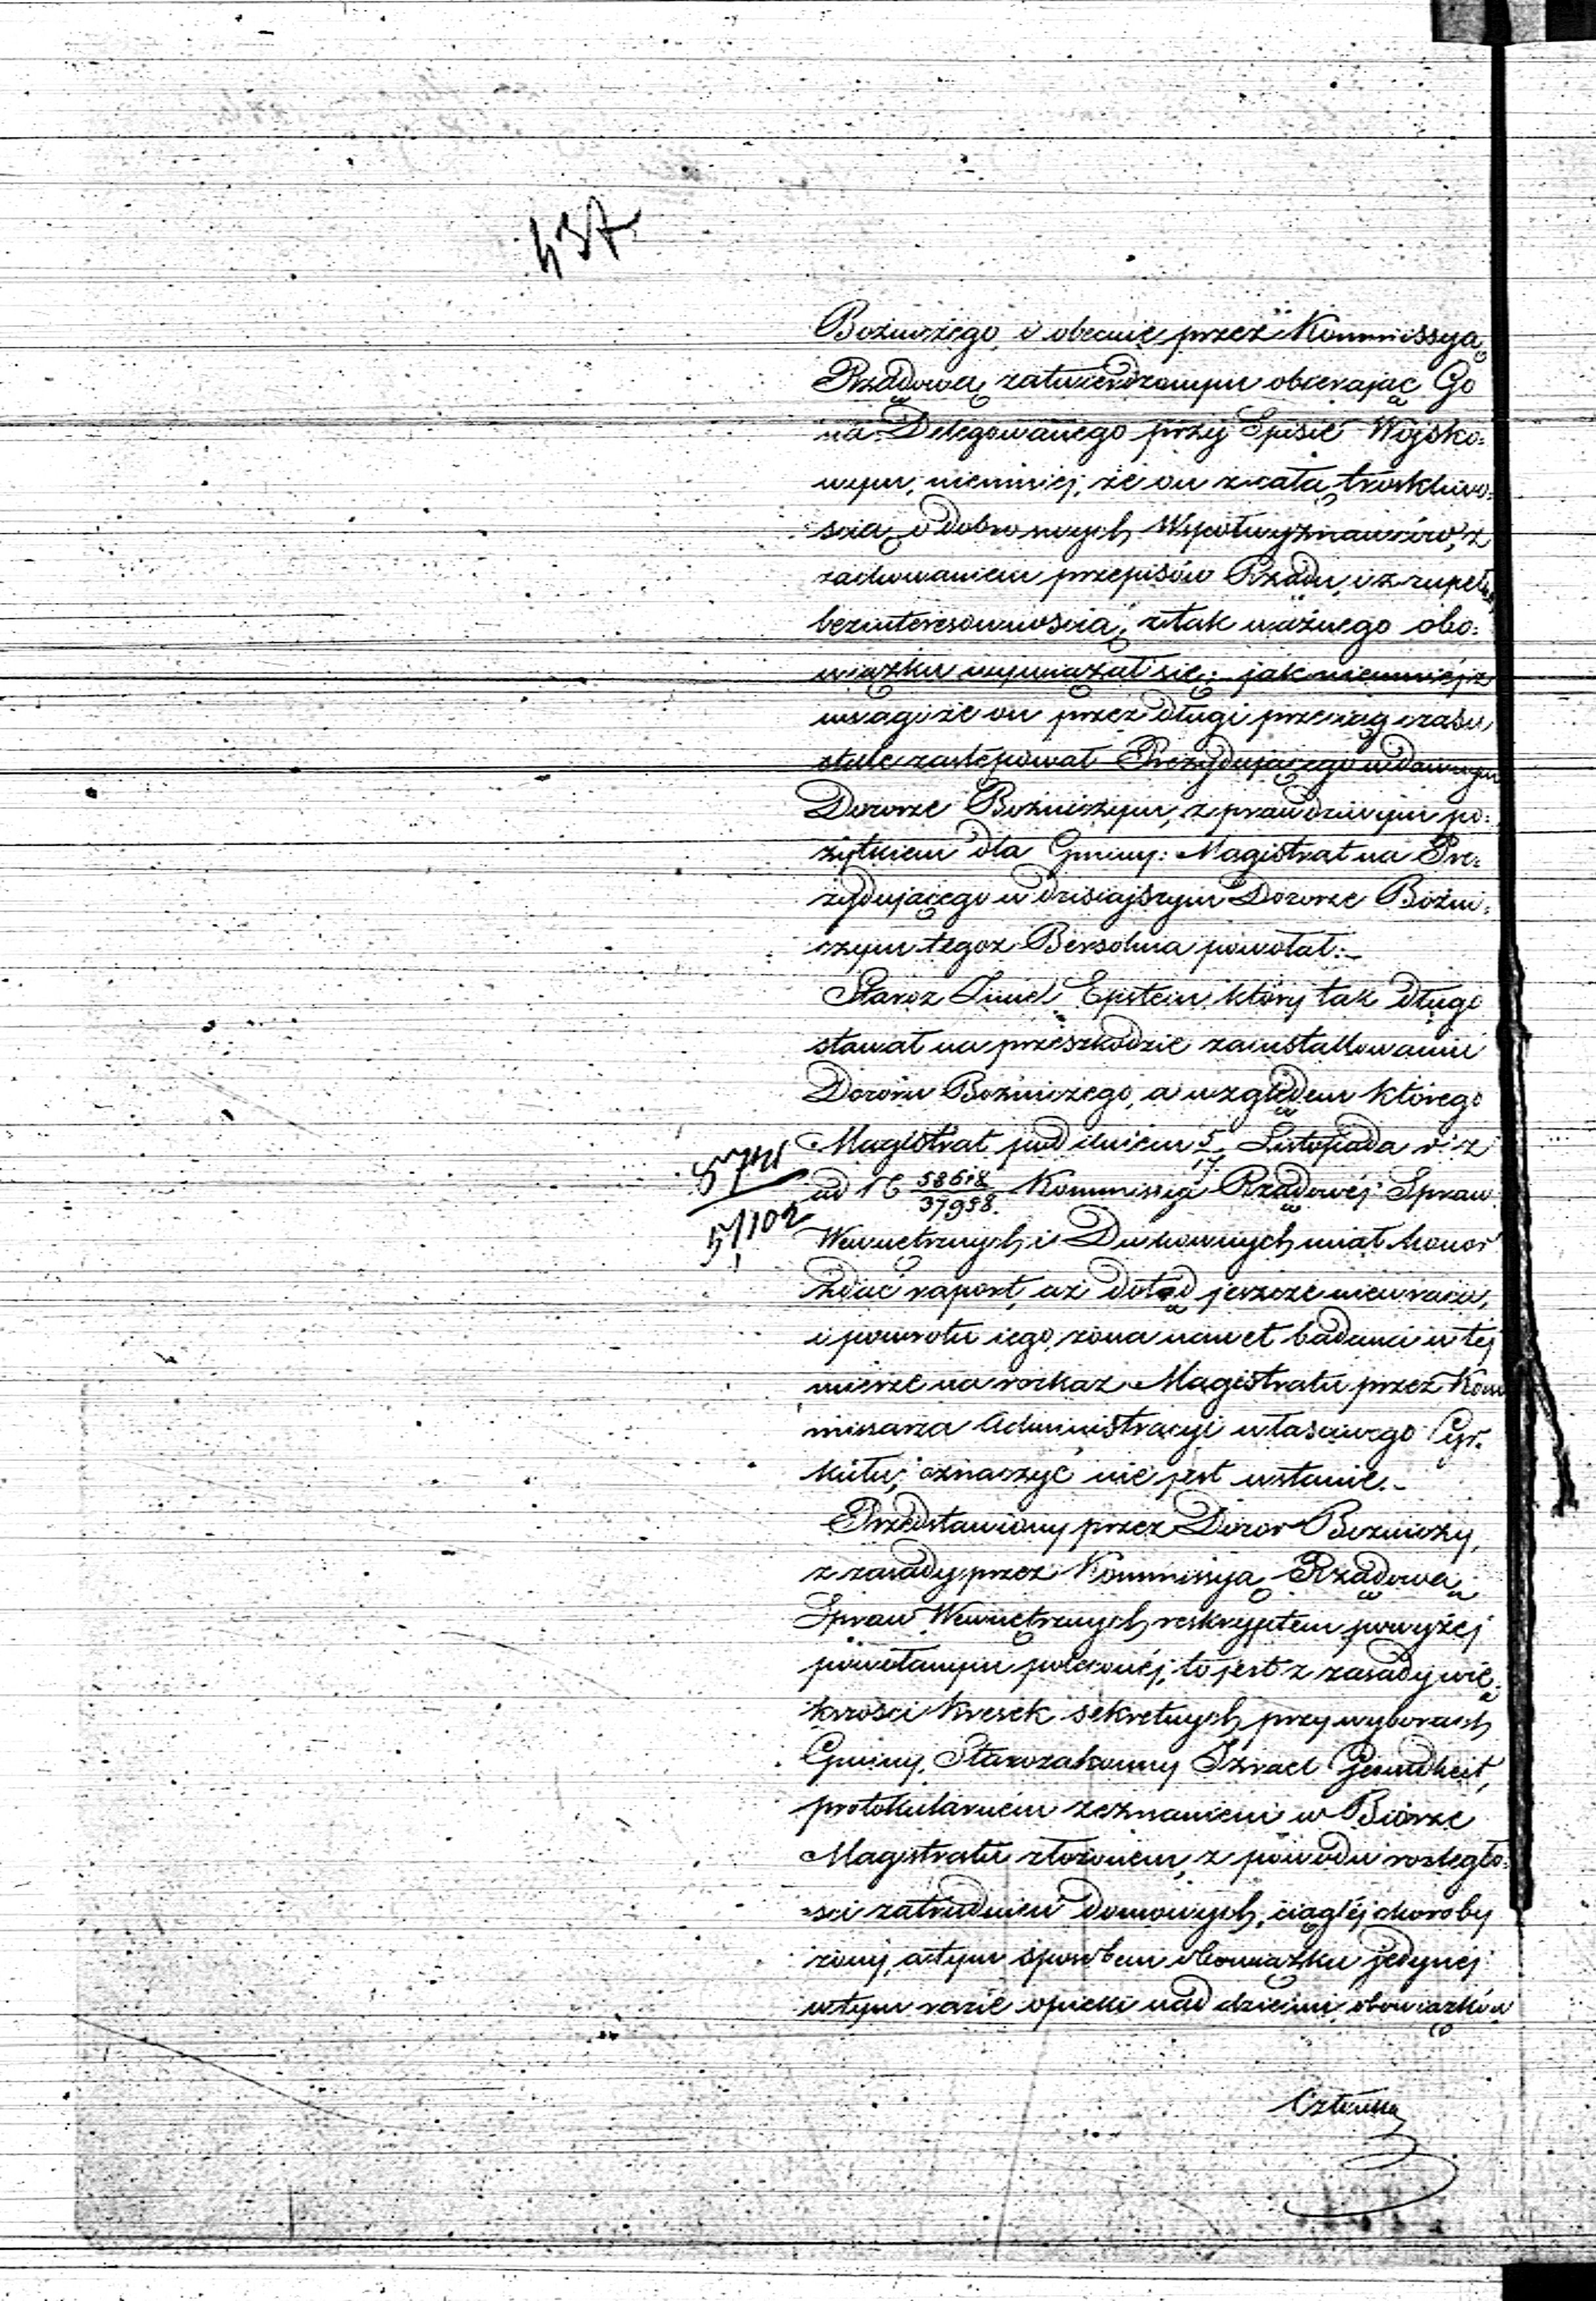 437
Bożniczego, i obecnie przez Kommissyą
Rządową zatwierdzonym obierając Go
na Delegowanego przy Spisie Wojsko=
wym, niemniej, że on z całą troskliwo=
scią o dobro swych Współwyznawców, z
zachowaniem przepisów Rządu, i z zupełną
bezinteresownością, z tak ważnego obo=
wiązku wywiązał się; jak niemniej z
uwagi że on przez długi przeciąg czasu
stale zastępował Prezydującego w dawnym
Dozorze Bożniczym, z prawdziwym po=
żytkiem dla Gminy: Magistrat na Pre=
zydującego w dzisiajszym Dozorze Bożni=
czym tegoż Bersohna powołał.-
Staroz Junel Epstein który tak długo
stawał na przeszkodzie zainstallowaniu
Dozoru Bożniczego, a względem którego
Magistrat pod dniem 5/17 Listopada r. z
ad N 58618/37958. Kommissyą Rządowéj Spraw
Wewnętrznych i Duchownych miał honor
zdać raport, aż dotąd jeszcze niewraca,
i powrotu iego, żona nawet badana w tej
mierze na rozkaz Magistratu przez Kom
missarza Administracyi właściwego Cyr=
kułu, oznaczyć nie jest wstanie.-
Przedstawiony przez Dozor Bożniczy,
z zasady przez Kommissyą Rządową
Spraw Wewnętrznych reskryptem powyżej
powołanym poleconéj, to jest z zasady wię=
kszości kresek sekretnych przy wyborach
Gminy, Starozakonny Izrael Gesundheit,
protokularnem zeznaniem w Biórze
Magistratu złożonem, z powodu rozległo=
=sci zatrudnień domowych, ciągłéj choroby
żony, a tym sposobem obowiązku jedynéj
w tym razie opieki nad dziećmi, obowiązków
Członka